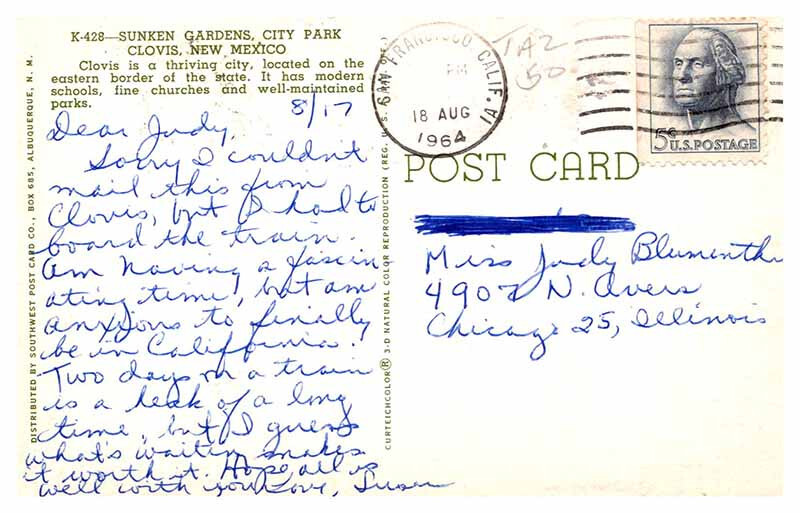 K-428—SUNKEN GARDENS, CITY PARK
CLOVIS, NEW MEXICO
Clovis is a thriving city, located on the
eastern border of the state. It has modern
schools, fine churches and well-maintained
parks.
8/17
Dear Judy,
Sorry I couldn't
mail this from
Clovis, but I had to
board the train.
Am having a fascin-
ating time, but am
anxious to finally
be in California.
Two days on a train
is a heck of a long
time, but I guess
what's waiting makes
it worth it. Hope all is
well with you. Love, Susan
DISTRIBUTED BY SOUTHWEST POST CARD CO., BOX 685, ALBUQUERQUE, N. M.
CURTEICHCOLOR® 3-D NATURAL COLOR REPRODUCTION (REG. U.S.
SAN FRANCISCO CALIF.
PM
18 AUG
1964
5¢ U.S. POSTAGE
POST CARD
Miss Judy
4907 N. Avers
Chicago 25, Illinois